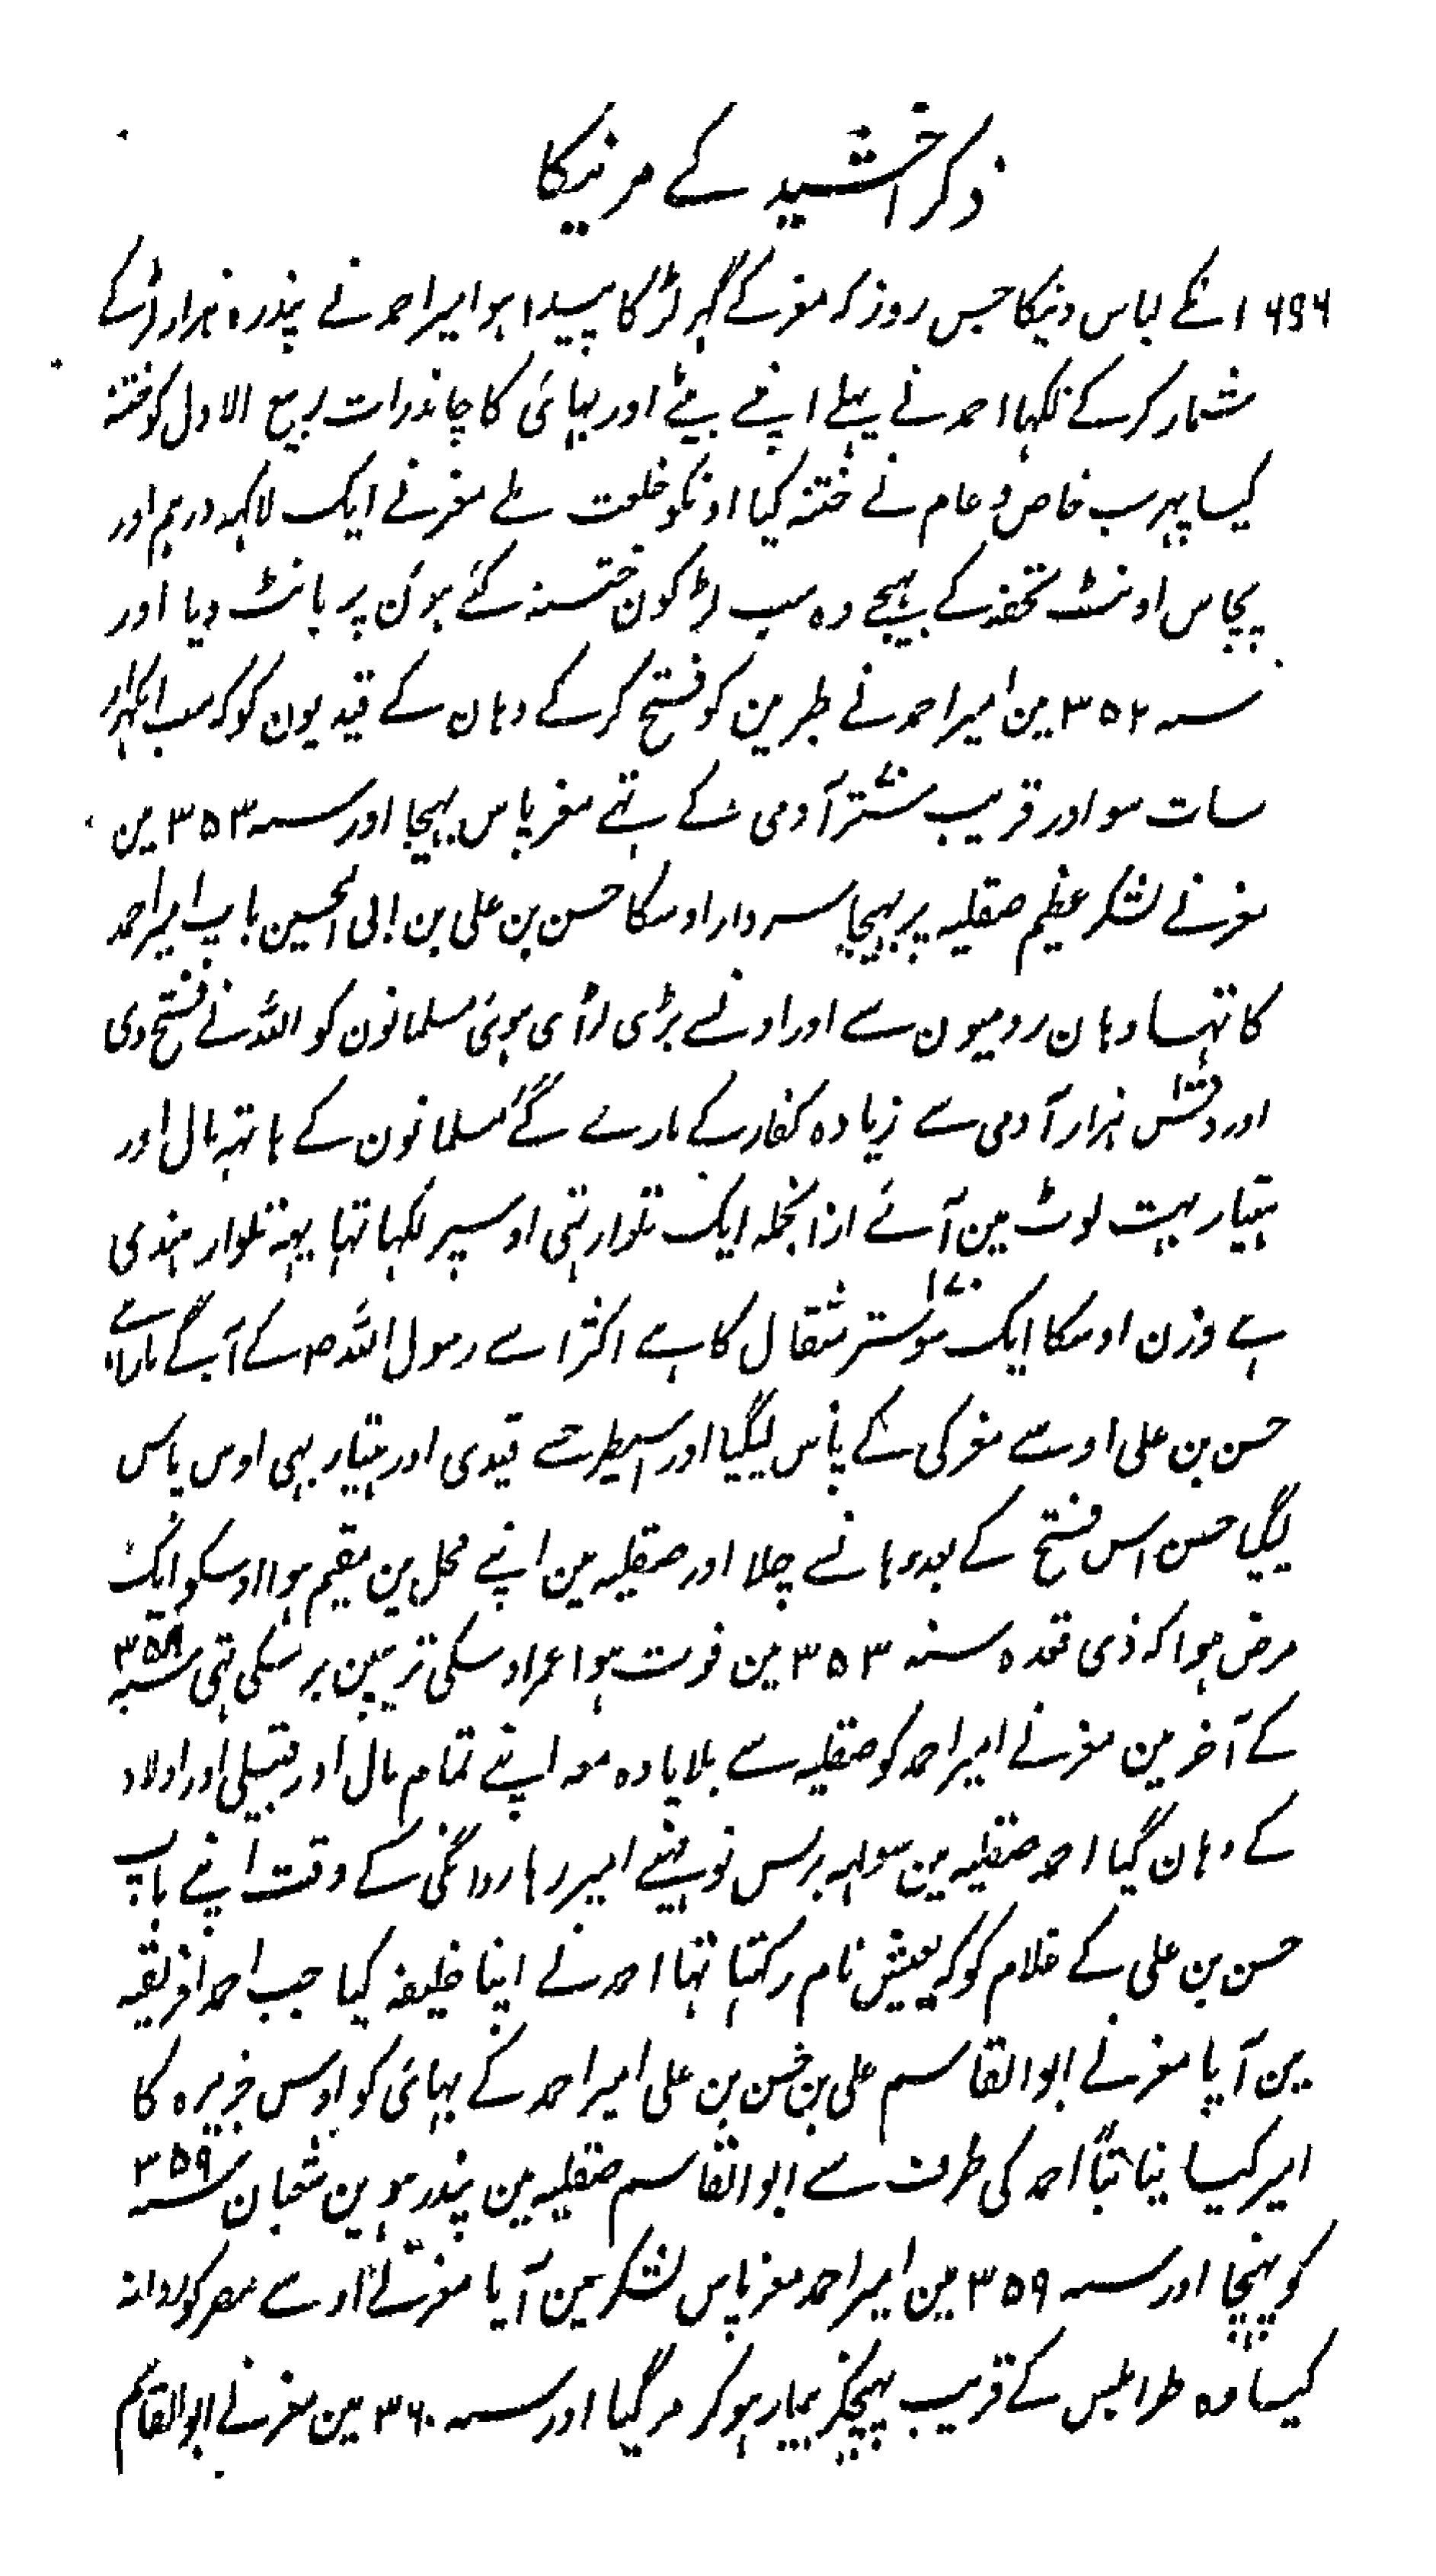 ذکر اخشید کے مرنیکا
۱۶۹۴ نکے لباس دنیکا جس روز کہ مغرکے گہر لڑکا پیدا ہوا امیر احمد نے پندرہ ہزار لڑکے
شمار کرکے لکہا احمد نے پہلے اپنے بیٹے اور بہائی کا چاندرات ربیع الاول کو ختنہ
کیا پہر سب خاص و عام نے ختنہ کیا اونکو خلعت ملے مغرنے ایک لاکہہ درہم اور
پچاس اونٹ تحفہ کے بہیجے وہ سب لڑکون ختنہ کئے ہوئن پر بانٹ دیا اور
سنہ ۳۵۲ مین امیر احمد نے طبرمین کو فتح کرکے وہان کے قیدیون کو کہ سب اکہزار
سات سو اور قریب ستر ۷۰ آدمی کے تہے مغر پاس بہیجا اور سنہ ۳۵۳ مین
مغرنے لشکر عظیم صقلیہ پر بہیجا سردار اوسکا حسن بن علی بن ابی الحسین باپ امیر احمد
کا تہا وہان رومیون سے اور اونسے بڑی لڑائی ہوئی مسلمانون کو اللہ نے فتح دی
اور دس ۱۰ ہزار آدمی سے زیادہ کفار کے مارے گئے مسلمانون کے ہاتہہ مال اور
ہتیار بہت لوٹ مین آئے ازانجملہ ایک تلوار تہی اوسپر لکہا تہا یہہ تلوار ہندی
ہے وزن اوسکا ایک سو ستر ۱۷۰ مثقال کا ہے اکثر اسے رسول اللہ ص کے آگے مارا ہے
حسن بن علی اوسے مغرکی کے پاس لیگیا اور اسیطرحسے قیدی اور ہتیار بہی اوس پاس
لیگیا حسن اس فتح کے بعد وہانسے چلا اور صقلیہ مین اپنے محل مین مقیم ہوا اوسکو ایک
مرض ہوا کہ ذی قعدہ سنہ ۳۵۳ مین فوت ہوا عمر اوسکی ترپین برسکی تہی سنہ ۳۵۸
کے آخر مین مغرنے امیر احمد کو صقلیہ سے بلایا وہ معہ اپنے تمام مال اور قبیلے اور اولاد
کے وہان گیا احمد صقلیہ مین سولہہ برس نو مہینے امیر رہا روانگی کے وقت اپنے باپ
حسن بن علی کے غلام کو کہ یعیش نام رکہتا تہا احمد نے اپنا خلیفہ کیا جب احمد افریقہ
مین آیا مغرنے ابو القاسم علی بن حسن بن علی امیر احمد کے بہائی کو اوس جزیرہ کا
امیر کیا نیابتاً احمد کی طرف سے ابو القاسم صقلیہ مین پندرہوین شعبان سنہ ۳۵۹
کو پہنچا اور سنہ ۳۵۹ مین امیر احمد مغر پاس لشکر مین آیا مغرنے اوسے مصر کو روانہ
کیا وہ طرابلس کے قریب پہنچکر بیمار ہوکر مرگیا اور سنہ ۳۶۰ مین مغرنے ابو القاسم